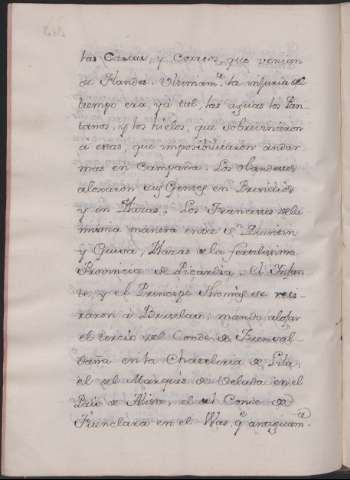 las Cartas, y Correos, que venian
de Flandes. Ultimam.te la injuria del
tiempo era yá tal, las aguas los Pan-
tanos, y los hielos, que sobrevinieron
á estas, que imposibilitaron andar
mas en Campaña. Los olandeses
alojaron sus Gentes en Presidios
y en Plazas. Los Franceses de la
misma manera entre S.n Quintin
y Guisa, Plazas de la fertilisima
Provincia de Picardia. El Infan-
te, y el Principe Thomás se reti-
raron á Bruselas, mando alojar
el tercio del Conde de Fuensal-
daña en la Chatelenia de Lila,
el del Marqués de Velada en el
País de Alost, el del Conde de
Fuenclara en el Was, q.e antiguam.te